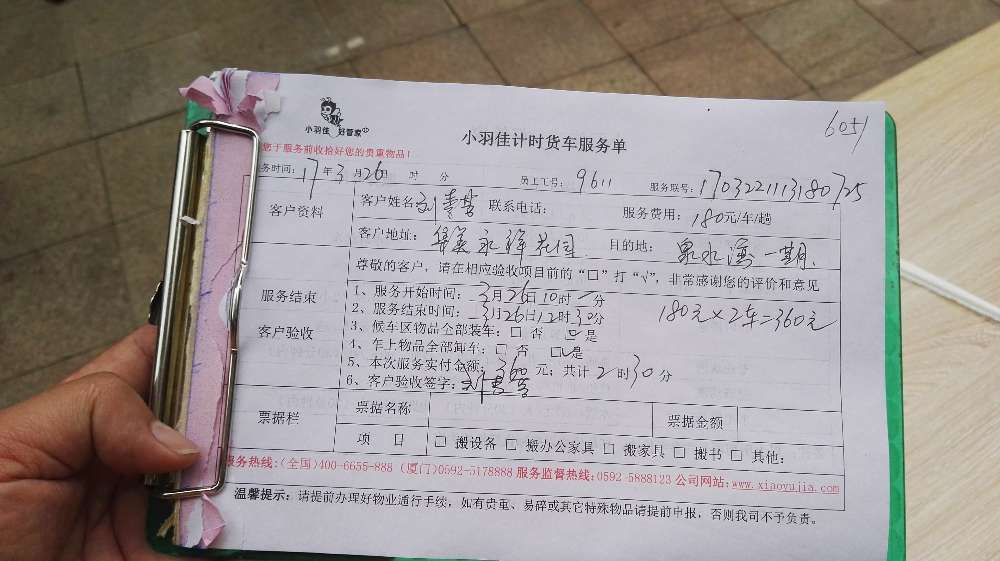 小羽佳 好管家
小羽佳计时货车服务单
6051
您于服务前收拾好您的贵重物品！
务时间：17年3月26日 时 分 员工工号：9611 服务联号：1703221113180725
客户资料
客户姓名：刘 联系电话： 服务费用：180元/车/趟
客户地址：华美永祥花园 目的地：泉水湾一期
服务结束
客户验收
尊敬的客户，请在相应验收项目前的“□”打“√”，非常感谢您的评价和意见
1、服务开始时间：3月26日10时一分
2、服务结束时间：3月26日12时30分
180元×2车=360元
3、候车区物品全部装车：□ 否 ☑是
4、车上物品全部卸车：□ 否 ☑是
5、本次服务实付金额：360元；共计2时30分
6、客户验收签字：刘
票据栏
票据名称 票据金额
项 目 □ 搬设备 □ 搬办公家具 □ 搬家具 □ 搬书 □ 其他：
服务热线：(全国)400-6655-888 (厦门)0592-5178888 服务监督热线：0592-5888123 公司网站：www.xiaoyujia.com
温馨提示：请提前办理好物业通行手续，如有贵重、易碎或其它特殊物品请提前申报，否则我司不予负责。